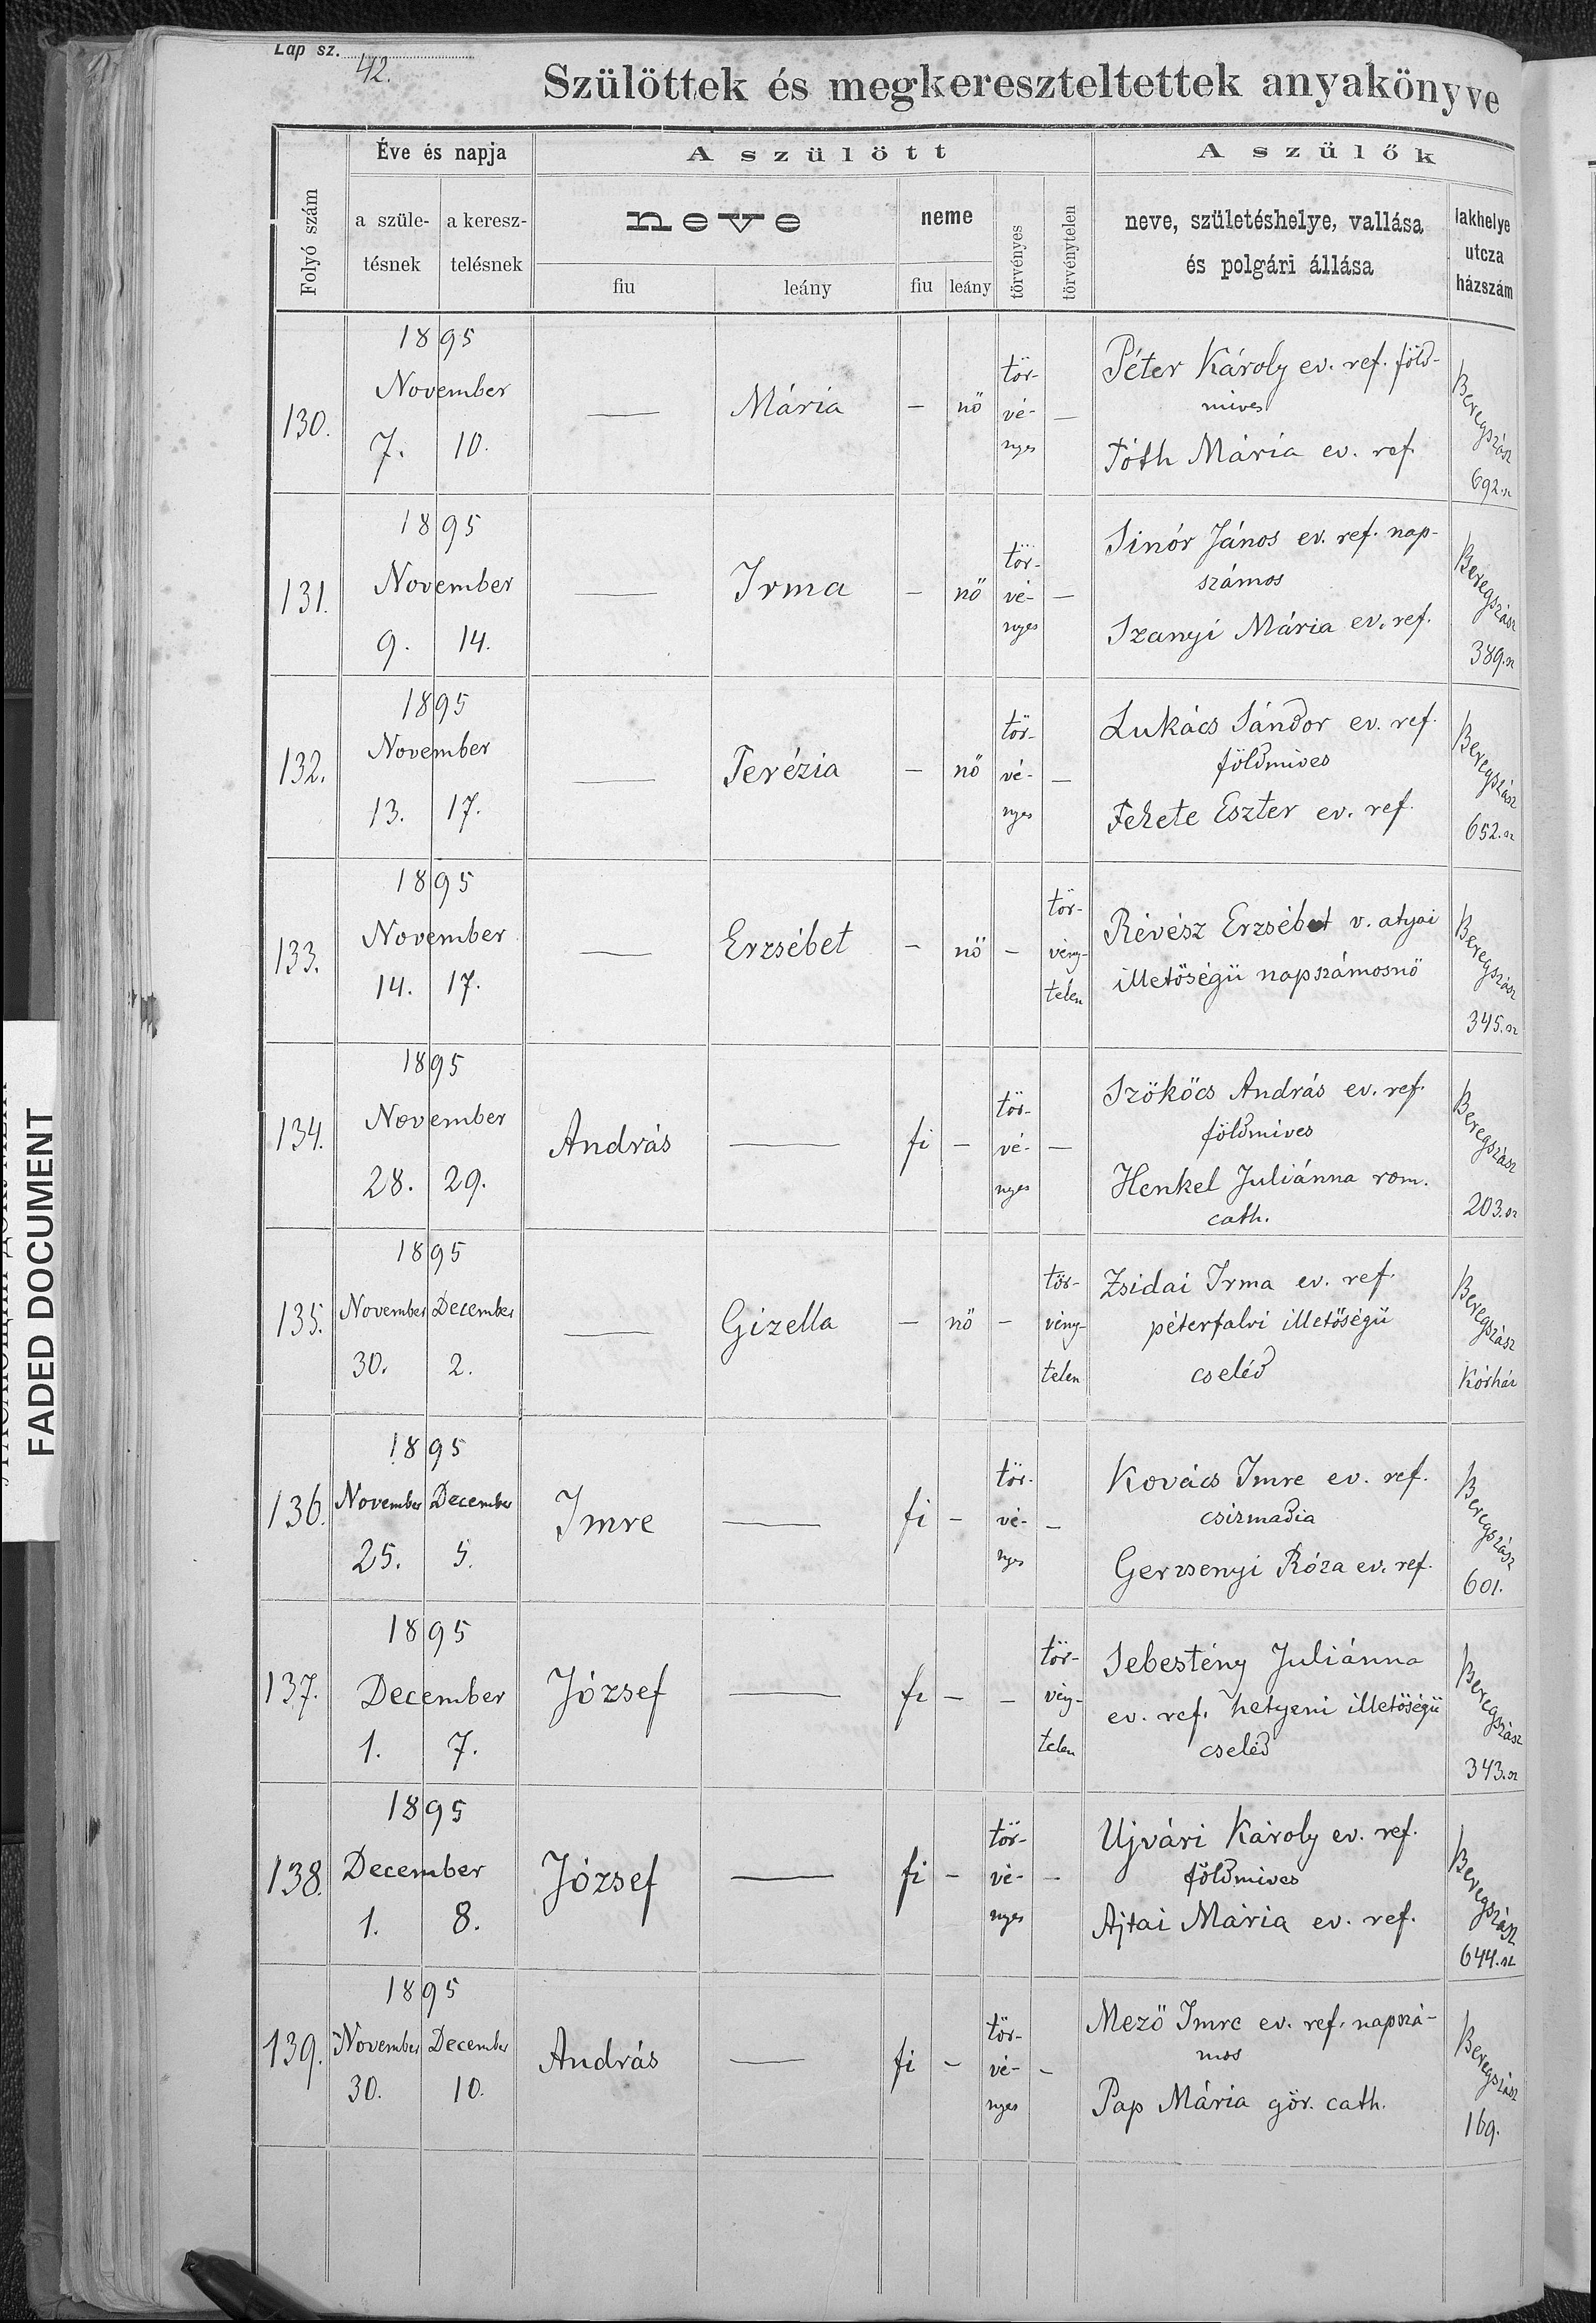 Lap sz. 42.
Szülöttek és megkereszteltettek anyakönyve
Folyó szám
Éve és napja
a szüle-
tésnek
a keresz-
telésnek
A szülött
neve
fiu
leány
neme
fiu
leány
törvényes
törvénytelen
A szülők
neve, születéshelye, vallása
és polgári állása
lakhelye
utcza
házszám
130.
1895
November
7. 10.
—
Mária
-
nö
tör-
vé-
nyes
—
Péter Károly ev. ref. föld-
mives
Tóth Mária ev. ref.
Beregszász
692. sz
131.
1895
November
9. 14.
—
Irma
-
nö
tör-
vé-
nyes
—
Sinór János ev. ref. nap-
számos
Szanyi Mária ev. ref.
Beregszász
389. sz
132.
1895
November
13. 17.
—
Terézia
-
nö
tör-
vé-
nyes
—
Lukács Sándor ev. ref.
földmives
Fekete Eszter ev. ref.
Beregszász
652. sz
133.
1895
November
14. 17.
—
Erzsébet
-
nö
-
tör-
vény-
telen
Révész Erzsébet v. atyai
illetőségü napszámosnö
Beregszász
345. sz
134.
1895
November
28. 29.
András
—
fi
-
tör-
vé-
nyes
—
Szököcs András ev. ref.
földmives
Henkel Juliánna rom.
cath.
Beregszász
203. sz
135.
1895
November December
30. 2.
—
Gizella
-
nö
-
tör-
vény-
telen
Zsidai Irma ev. ref.
péterfalvi illetőségü
cseléd
Beregszász
Kórház
136.
1895
November December
25. 5.
Imre
—
fi
-
tör-
vé-
nyes
—
Kovács Imre ev. ref.
csizmadia
Gerzsenyi Róza ev. ref.
Beregszász
601.
137.
1895
December
1. 7.
József
—
fi
-
-
tör-
vény-
telen
Sebestény Juliánna
ev. ref. hetyeni illetőségü
cseléd
Beregszász
343. sz
138.
1895
December
1. 8.
József
—
fi
-
tör-
vé-
nyes
—
Ujvári Károly ev. ref.
földmives
Ajtai Mária ev. ref.
Beregszász
644. sz
139.
1895
November December
30. 10.
András
—
fi
-
tör-
vé-
nyes
-
Mező Imre ev. ref. napszá-
mos
Pap Mária gör. cath.
Beregszász
169.
FADED DOCUMENT